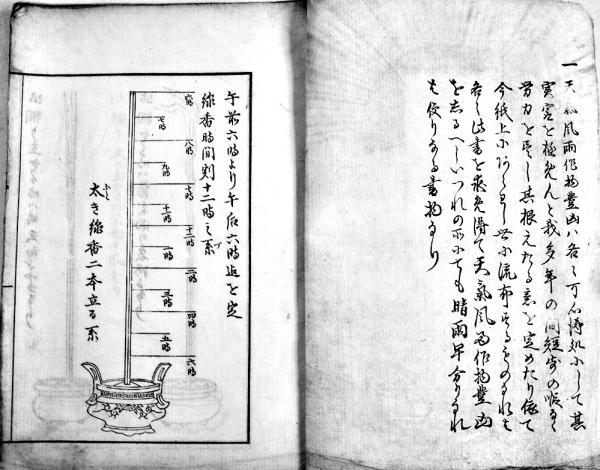 一天氣風雨作物豊凶ハ各々可心得処にして其
を極免んと我多年の間短才の
労力を尽し其根元たる意を定めたり依て
今紙上に し世に流布するものなれは
各々此書を求免得て天氣風雨作物豊凶
を志るへしいつれの所にても晴雨早分りなれ
も便りなる書物なり
午前六時より午后六時迄を定
線香時間割十二時之
六時
七時
八時
九時
十時
十一時
十二時
一時
二時
三時
四時
五時
六時
太き線香二本立る